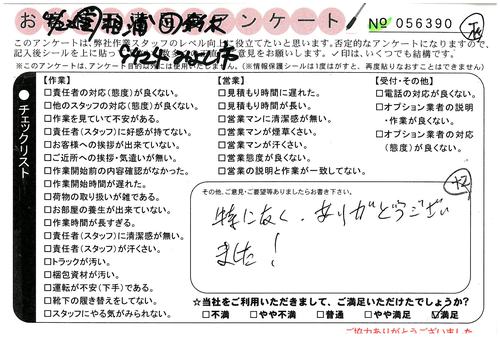 アンケート
№ 056390
このアンケートは、弊社作業スタッフのレベル向上に役立てたいと思います。否定的なアンケートになりますので、
記入後シールを上に貼って
意見をお願いします。✓印は、いくつでも結構です。
※このアンケートは、アンケート目的以外には使用いたしません。(※情報保護シールは1度はがすと、再度貼りなおすことはできません)
チェックリスト
【作業】
□責任者の対応(態度)が良くない。
□他のスタッフの対応(態度)が良くない。
□作業を見ていて不安がある。
□責任者(スタッフ)に好感が持てない。
□お客様への挨拶が出来ていない。
□ご近所への挨拶・気遣いが無い。
□作業開始前の内容確認がなかった。
□作業開始時間が遅れた。
□荷物の取り扱いが雑である。
□お部屋の養生が出来ていない。
□作業時間が長すぎる。
□責任者(スタッフ)に清潔感が無い。
□責任者(スタッフ)が汗くさい。
□トラックが汚い。
□梱包資材が汚い。
□運転が不安(下手)である。
□靴下の履き替えをしてない。
□スタッフにやる気がみられない。
【営業】
□見積もり時間に遅れた。
□見積もり時間が長い。
□営業マンに清潔感が無い。
□営業マンが煙草くさい。
□営業マンが汗くさい。
□営業態度が良くない。
□営業の説明と作業が一致してない。
【受付・その他】
□電話の対応が良くない。
□オプション業者の説明
・作業が良くない。
□オプション業者の対応
(態度)が良くない。
その他、ご意見・ご要望等ありましたらお書き下さい。
特になく、ありがとうござい
ました!
☆当社をご利用いただきまして、ご満足いただけたでしょうか?
□不満 □やや不満 □普通 □やや満足 ☑満足
ご協力ありがとうございました